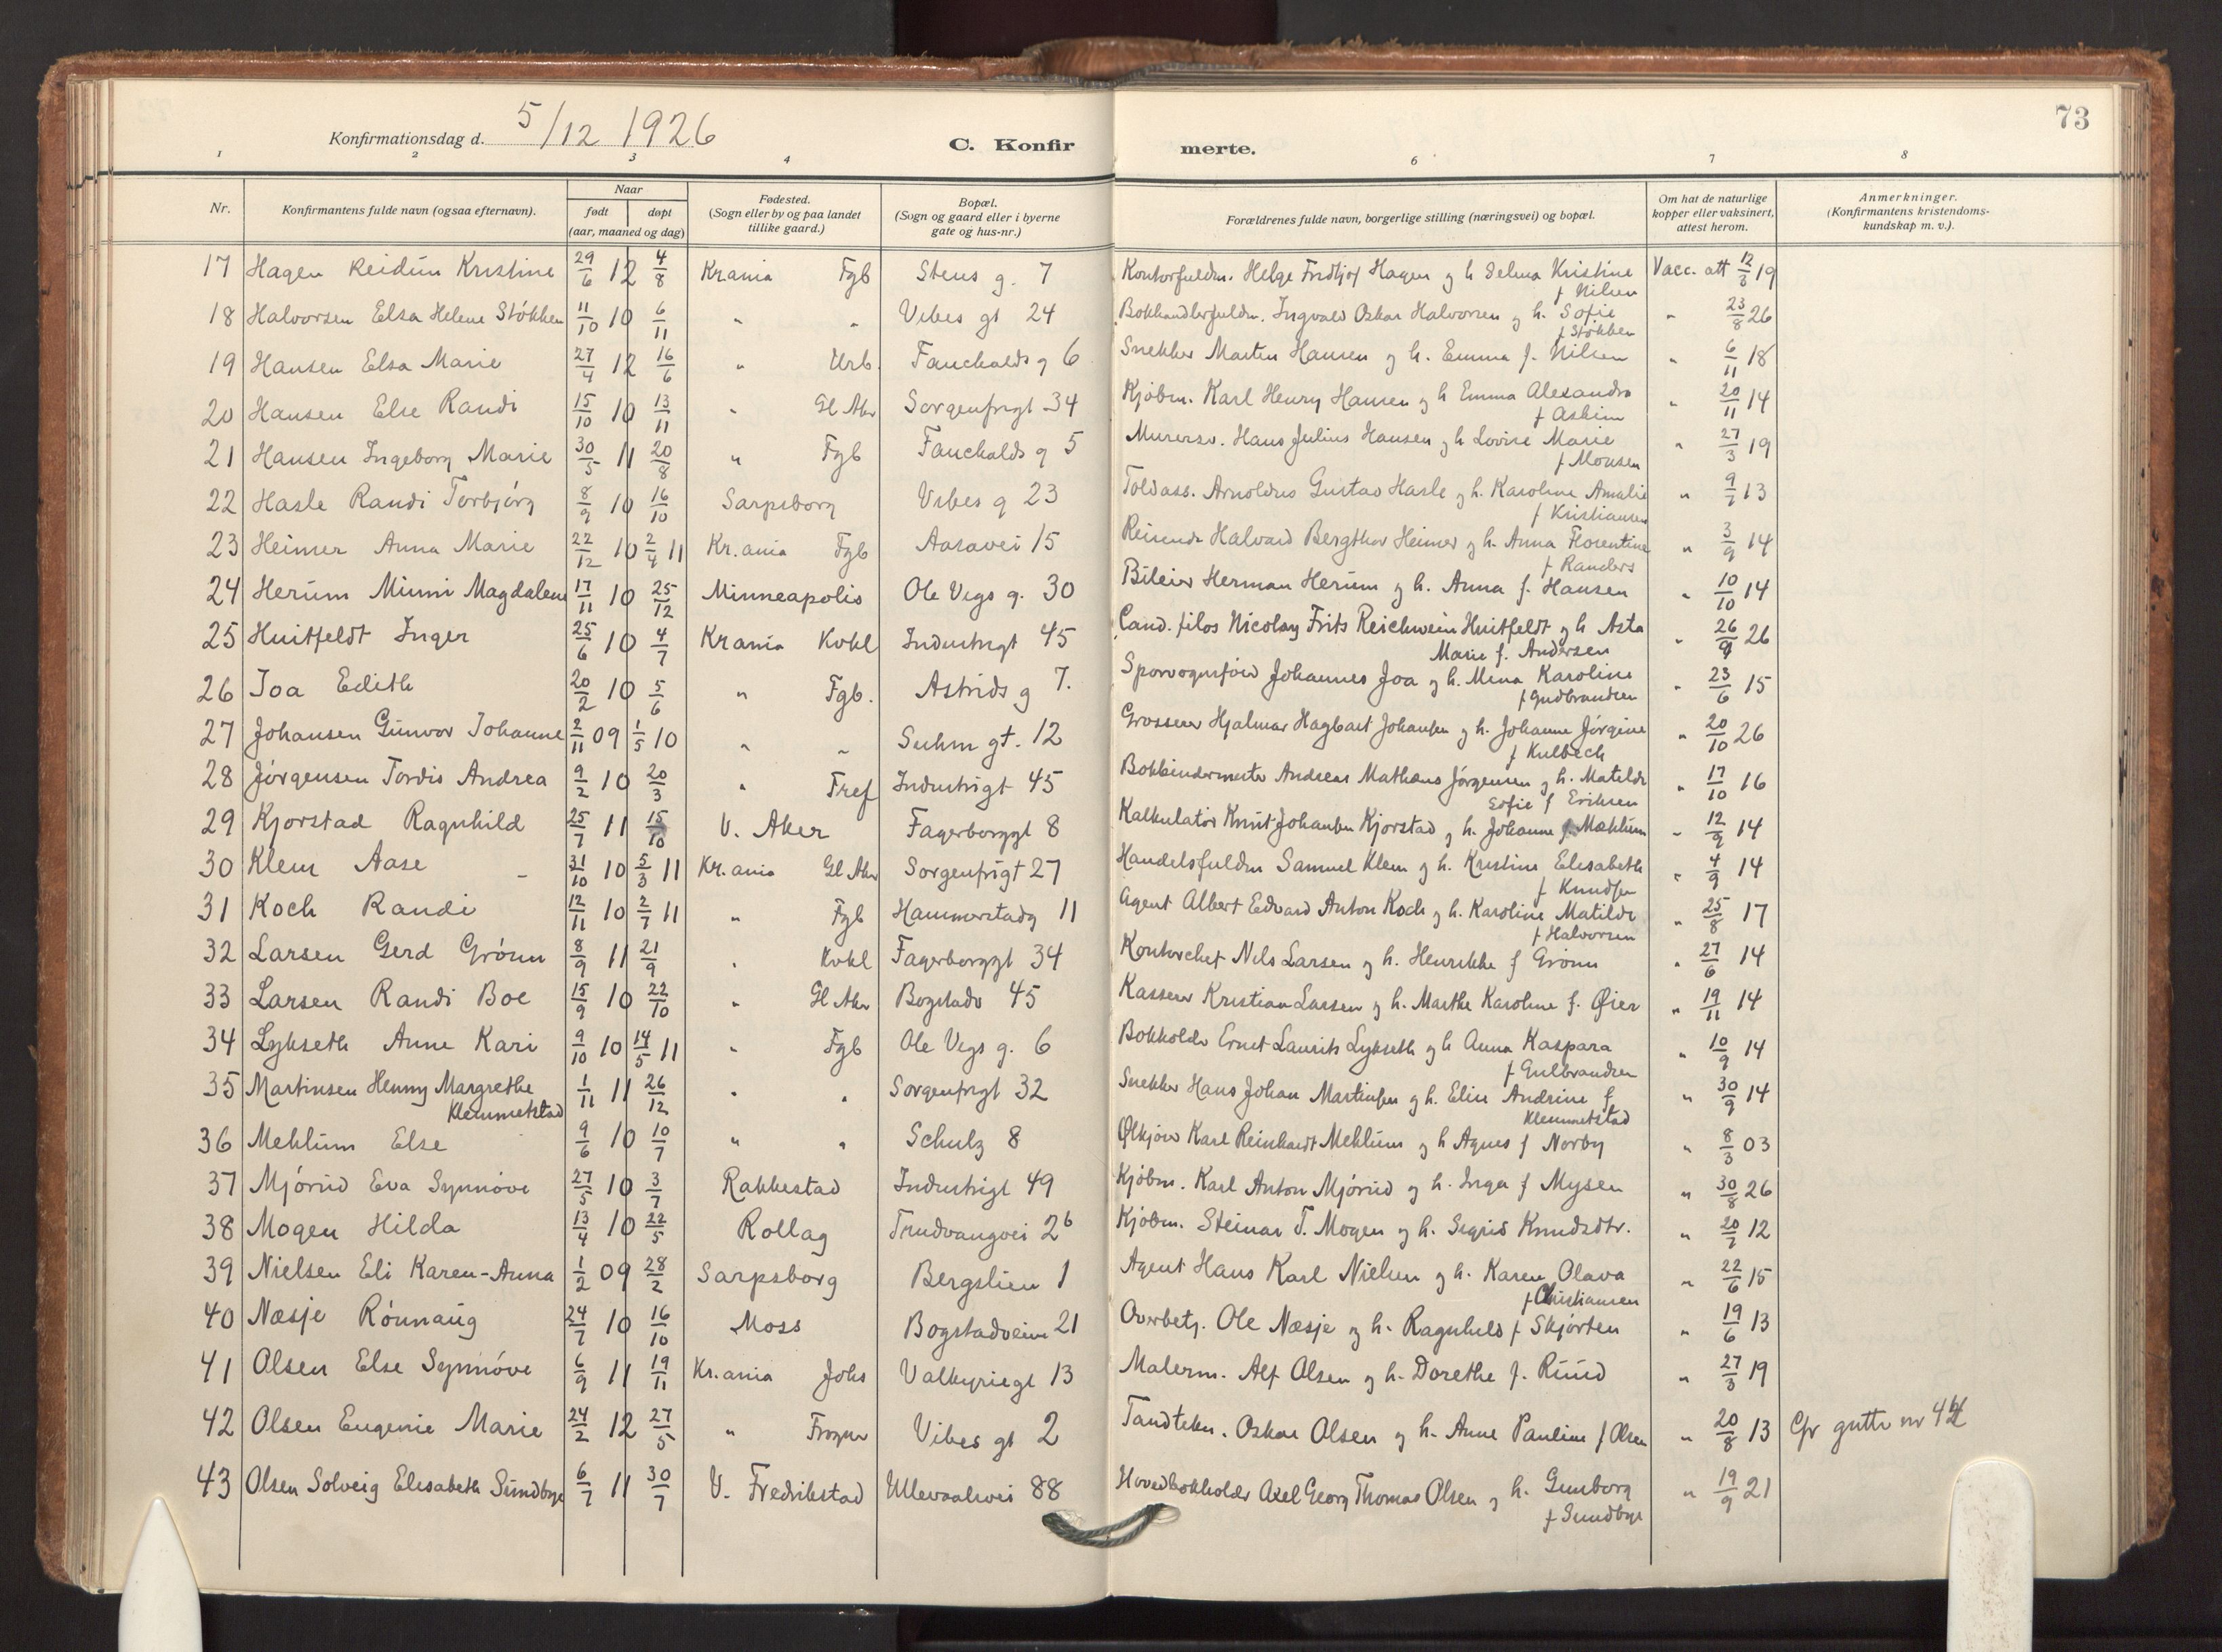 73
Konfirmationsdag d. 5/12 1926
C. Konfirmerte.
1 2 3 4 6 7 8
Nr. Konfirmantens fulde navn (ogsaa efternavn). Naar født døpt (aar, maaned og dag) Fødested. (Sogn eller by og paa landet tillike gaard.) Bopæl. (Sogn og gaard eller i byerne gate og hus-nr.) Forældrenes fulde navn, borgerlige stilling (næringsvei) og bopæl. Om hat de naturlige kopper eller vaksinert, attest herom. Anmerkninger. (Konfirmantens kristendoms-kundskap m. v.).
17 Hagen Reidun Kristine 29/6 12 4/8 Krania Fgb Stens g. 7 Kontorfuldm. Helge Fridtjof Hagen og h Selma Kristine f Nilsen Vacc. att 12/3 19
18 Halvorsen Elsa Helene Stökken 11/10 10 6/11 " " Vibes gt 24 Bokhandlerfuldm. Ingvald Oskar Halvorsen og h. Sofie f Stökken " 23/8 26
19 Hansen Elsa Marie 27/4 12 16/6 " Urb. Fauchalds g 6 Snekker Martin Hansen og h. Emma f. Nilsen " 6/11 18
20 Hansen Else Randi 15/10 10 13/11 " Gl Aker Sorgenfrigt 34 Kjöbm. Karl Henry Hansen og h Emma Alexandra f Askim " 20/11 14
21 Hansen Ingeborg Marie 30/5 11 20/8 " Fgb Fauchalds g 5 Murersv. Hans Julius Hansen og h Lovise Marie f Monsen " 27/3 19
22 Hasle Randi Torbjörg 8/9 10 16/10 Sarpsborg Vibes g 23 Toldass. Arnoldus Gustav Hasle og h. Karoline Amalie f Kristiansen " 9/7 13
23 Heimer Anna Marie 22/12 10 2/4 11 Kr.ania Fgb Aasavei 15 Halvard Bergthor Heimer og h. Anna Florentine f Randers " 3/9 14
24 Herum Minni Magdalene 17/11 10 25/12 Minneapolis Ole Vigs g. 30 Bileier Herman Herum og h. Anna f. Hansen " 10/10 14
25 Huitfeldt Inger 25/6 10 4/7 Krania Kvkl Industrigt 45 Cand. filos Nicolay Frits Reichwein Huitfeldt og h Asta Marie f. Andersen " 26/9 26
26 Joa Edith 20/2 10 5/6 " Fgb. Astrids g 7. Sporvognsförer Johannes Joa og h. Mina Karoline f Gudbrandsen " 23/6 15
27 Johansen Gunvor Johanne 2/11 09 1/5 10 " " Suhm gt. 12 Grosserer Hjalmar Hagbart Johansen og h. Johanne Jörgine f Kulbech " 20/10 26
28 Jörgensen Tordis Andrea 9/2 10 20/3 " Tref Industrigt 45 Bokbindermester Andreas Mathæus Jörgensen og h. Matilde Sofie f Eriksen " 17/10 16
29 Kjorstad Ragnhild 25/7 11 15/10 V. Aker Fagerborggt 8 Kalkulatör Knut Johansen Kjorstad og h. Johanne f. Mæhlum " 12/9 14
30 Klem Aase 31/10 10 5/3 11 Kr.ania Gl Aker Sorgenfrigt 27 Handelsfuldm Samuel Klem og h. Kristine Elisabeth f Knudsen " 4/9 14
31 Koch Randi 12/11 10 2/7 11 " Fgb Hammerstadg 11 Agent Albert Edvard Anton Koch og h. Karoline Matilde f Halvorsen " 25/8 17
32 Larsen Gerd Grönn 8/9 11 21/9 " Kvkl Fagerborggt 34 Kontorchef Nils Larsen og h. Henrikke f Grönn " 27/6 14
33 Larsen Randi Boe 15/9 10 22/10 " Gl Aker Bogstadv 45 Kasserer Kristian Larsen og h. Marthe Karoline f. Øier " 19/11 14
34 Lykseth Anne Kari 9/10 10 14/5 11 " Fgb Ole Vigs g. 6 Bokholder Ernst Laurits Lykseth og h Anna Kaspara f Gulbrandsen " 10/9 14
35 Martinsen Henny Margrethe Klemmetstad 1/11 11 26/12 " " Sorgenfrigt 32 Snekker Hans Johan Martinsen og h. Elise Andrine f Klemmetstad " 30/9 14
36 Mehlum Else 9/6 10 10/7 " " Schulz 8 Ølkjörer Karl Reinhardt Mehlum og h Agnes f Norby " 8/3 03
37 Mjörud Eva Synnöve 27/5 10 3/7 Rakkestad Industrigt 49 Kjöbm. Karl Anton Mjörud og h. Inga f Mysen " 30/8 26
38 Mogen Hilda 13/4 10 22/5 Rollag Trudvangvei 2b Kjöbm. Steinar T. Mogen og h. Sigrid Knudsdtr. " 20/7 12
39 Nielsen Eli Karen-Anna 1/2 09 28/2 Sarpsborg Bergslien 1 Agent Hans Karl Nielsen og h. Karen Olava f Christiansen " 22/6 15
40 Næsje Rönnaug 24/7 10 16/10 Moss Bogstadveien 21 Overbetj. Ole Næsje og h. Ragnhild f Skjörten " 19/6 13
41 Olsen Else Synnöve 6/9 11 19/11 Kr.ania Johs Valkyriegt 13 Malerm. Alf Olsen og h. Dorethe f. Ruud " 27/3 19
42 Olsen Eugenie Marie 24/2 12 27/5 " Frogner Vibes gt 2 Tandtekn. Oskar Olsen og h. Anne Pauline f Olsen " 20/8 13 Cfr gutte nr 42
43 Olsen Solveig Elisabeth Sundbye 6/7 11 30/7 V. Fredrikstad Ullevaalsvei 88 Hovedbokholder Axel Georg Thomas Olsen og h. Gunborg f Sundbye " 19/9 21